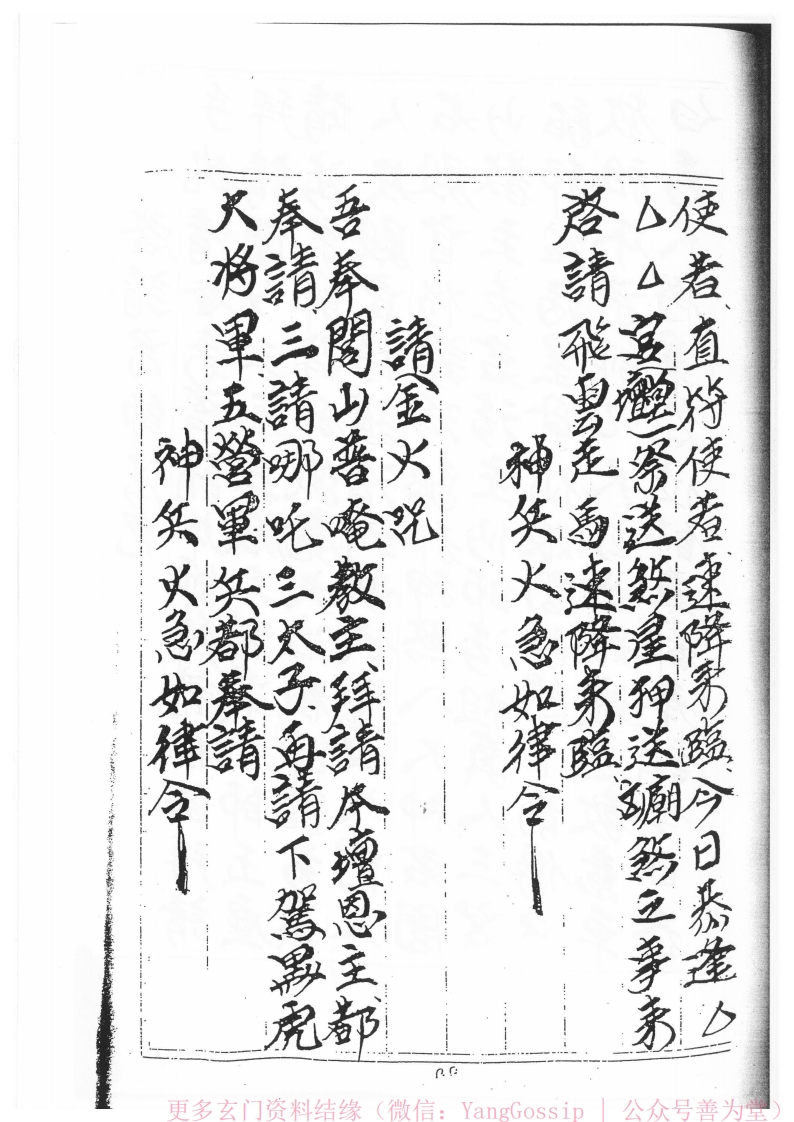 使者直符使者速降來臨今日恭逢厶
厶厶宮壇祭送煞星押送廟煞之事來
啓請飛雲走馬速降來臨
神兵火急如律令
請金火咒
吾奉閭山普唵教主拜請本壇恩主都
奉請三請哪吒三太子再請下駕黑虎
大將軍五營軍兵都奉請
神兵火急如律令
更多玄门资料结缘（微信：YangGossip | 公众号善为堂）